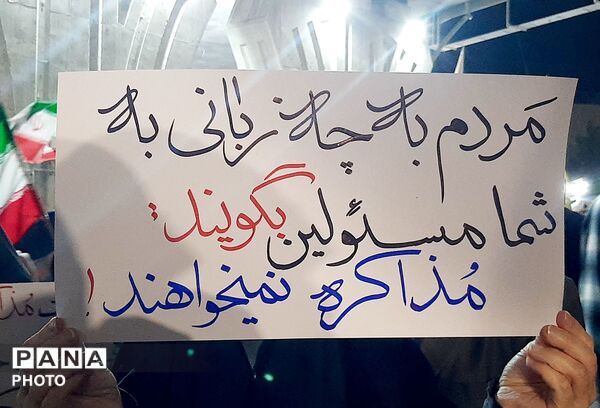 مَردم به چه زبانی به
شما مسئولین بگویند:
مُذاکره نمیخواهند!
PANA
PHOTO